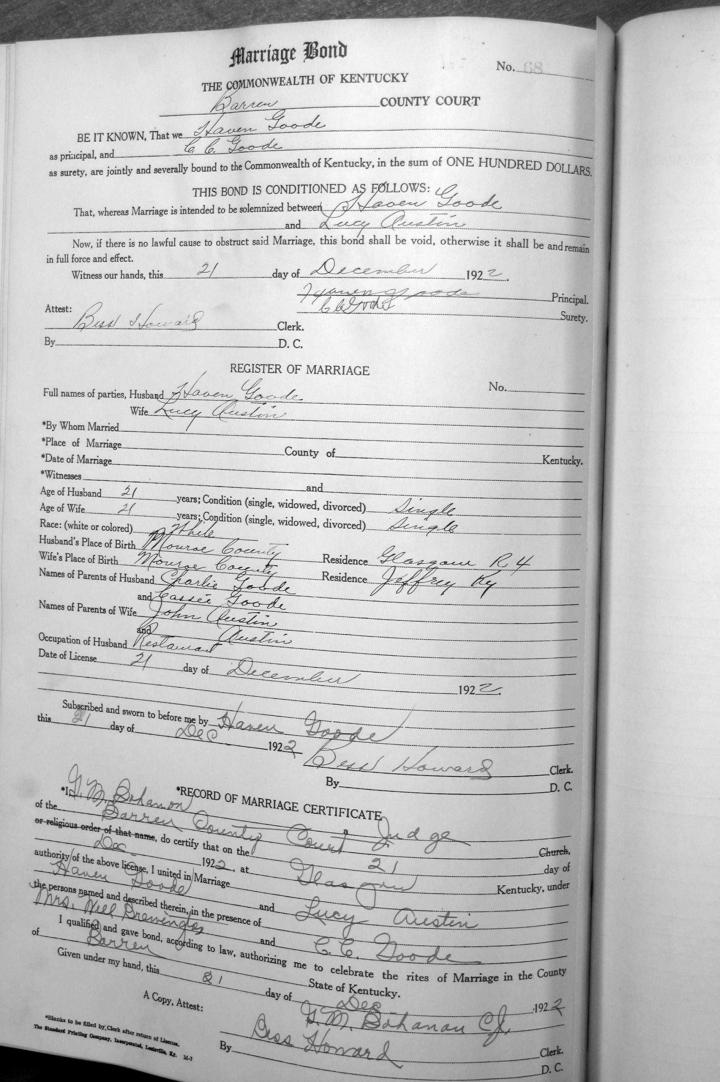 Marriage Bond
No. 68
THE COMMONWEALTH OF KENTUCKY
Barren COUNTY COURT
BE IT KNOWN, That we Haven Goode
as principal, and C. C. Goode
as surety, are jointly and severally bound to the Commonwealth of Kentucky, in the sum of ONE HUNDRED DOLLARS.
THIS BOND IS CONDITIONED AS FOLLOWS:
That, whereas Marriage is intended to be solemnized between Haven Goode
and Lucy Austin
Now, if there is no lawful cause to obstruct said Marriage, this bond shall be void, otherwise it shall be and remain
in full force and effect.
Witness our hands, this 21 day of December 1922.
Haven Goode Principal.
C C Goode Surety.
Attest:
Bess Howard Clerk.
By D. C.
REGISTER OF MARRIAGE
No.
Full names of parties, Husband Haven Goode
Wife Lucy Austin
*By Whom Married
*Place of Marriage County of Kentucky.
*Date of Marriage
*Witnesses and
Age of Husband 21 years; Condition (single, widowed, divorced) Single
Age of Wife 21 years; Condition (single, widowed, divorced) Single
Race: (white or colored) White
Husband's Place of Birth Monroe County Residence Glasgow R 4
Wife's Place of Birth Monroe County Residence Jeffrey Ky
Names of Parents of Husband Charlie Goode
and Cassie Goode
Names of Parents of Wife John Austin
and Austin
Occupation of Husband Restaurant
Date of License 21 day of December 1922.
Subscribed and sworn to before me by Haven Goode
this 21 day of Dec 1922
Bess Howard Clerk.
By D. C.
*RECORD OF MARRIAGE CERTIFICATE
*I, G. M. Bohanon
of the Barren County Court Judge Church,
or religious order of that name, do certify that on the 21 day of
Dec 1922, at Glasgow Kentucky, under
authority of the above license, I united in Marriage
Haven Goode and Lucy Austin
the persons named and described therein, in the presence of
Mrs. Will and C. C. Goode
I qualified and gave bond, according to law, authorizing me to celebrate the rites of Marriage in the County
of Barren State of Kentucky.
Given under my hand, this 21 day of Dec 1922
G. M. Bohanon C J.
A Copy, Attest:
Bess Howard Clerk.
By D. C.
*Blanks to be filled by Clerk after return of License.
The Standard Printing Company, Incorporated, Louisville, Ky.